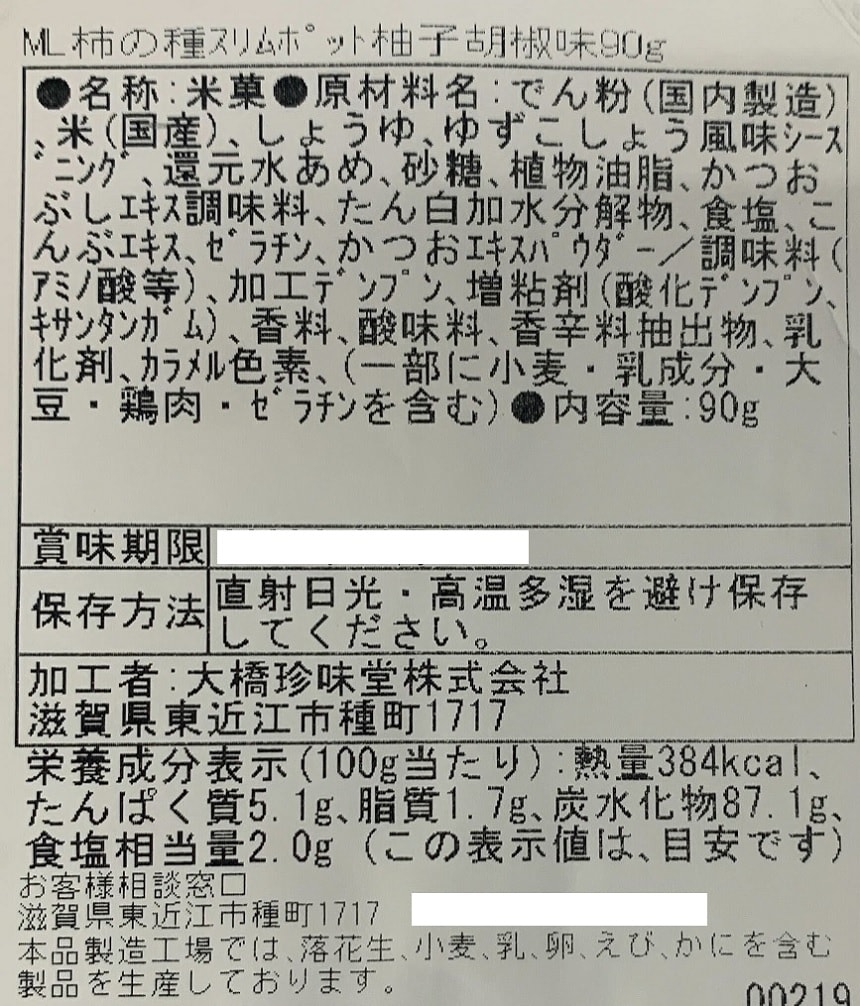 ML柿の種スリムポット柚子胡椒味90g
●名称:米菓●原材料名:でん粉(国内製造)
、米(国産)、しょうゆ、ゆずこしょう風味シーズ
ニング、還元水あめ、砂糖、植物油脂、かつお
ぶしエキス調味料、たん白加水分解物、食塩、こ
んぶエキス、ゼラチン、かつおエキスパウダー／調味料(
アミノ酸等)、加工デンプン、増粘剤(酸化デンプン、
キサンタンガム)、香料、酸味料、香辛料抽出物、乳
化剤、カラメル色素、(一部に小麦・乳成分・大
豆・鶏肉・ゼラチンを含む)●内容量:90g
賞味期限
保存方法
直射日光・高温多湿を避け保存
してください。
加工者:大橋珍味堂株式会社
滋賀県東近江市種町1717
栄養成分表示(100g当たり):熱量384kcal、
たんぱく質5.1g、脂質1.7g、炭水化物87.1g、
食塩相当量2.0g (この表示値は、目安です)
お客様相談窓口
滋賀県東近江市種町1717
本品製造工場では、落花生、小麦、乳、卵、えび、かにを含む
製品を生産しております。
00219